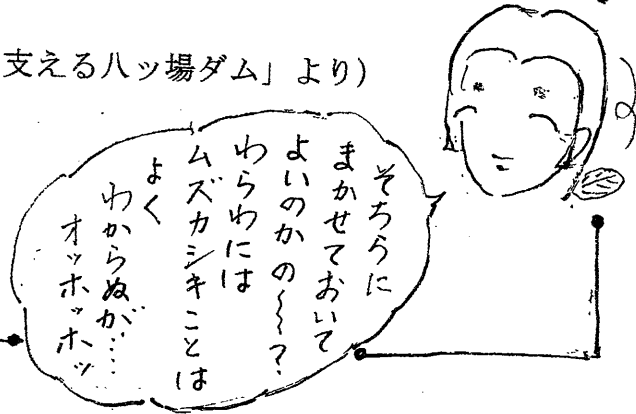 支えるハッ場ダム」より)
そちらに
まかせておいて
よいのか の〜〜?
わらわには
ムズカシキことは
よく
わからぬが……
オッホッホッ